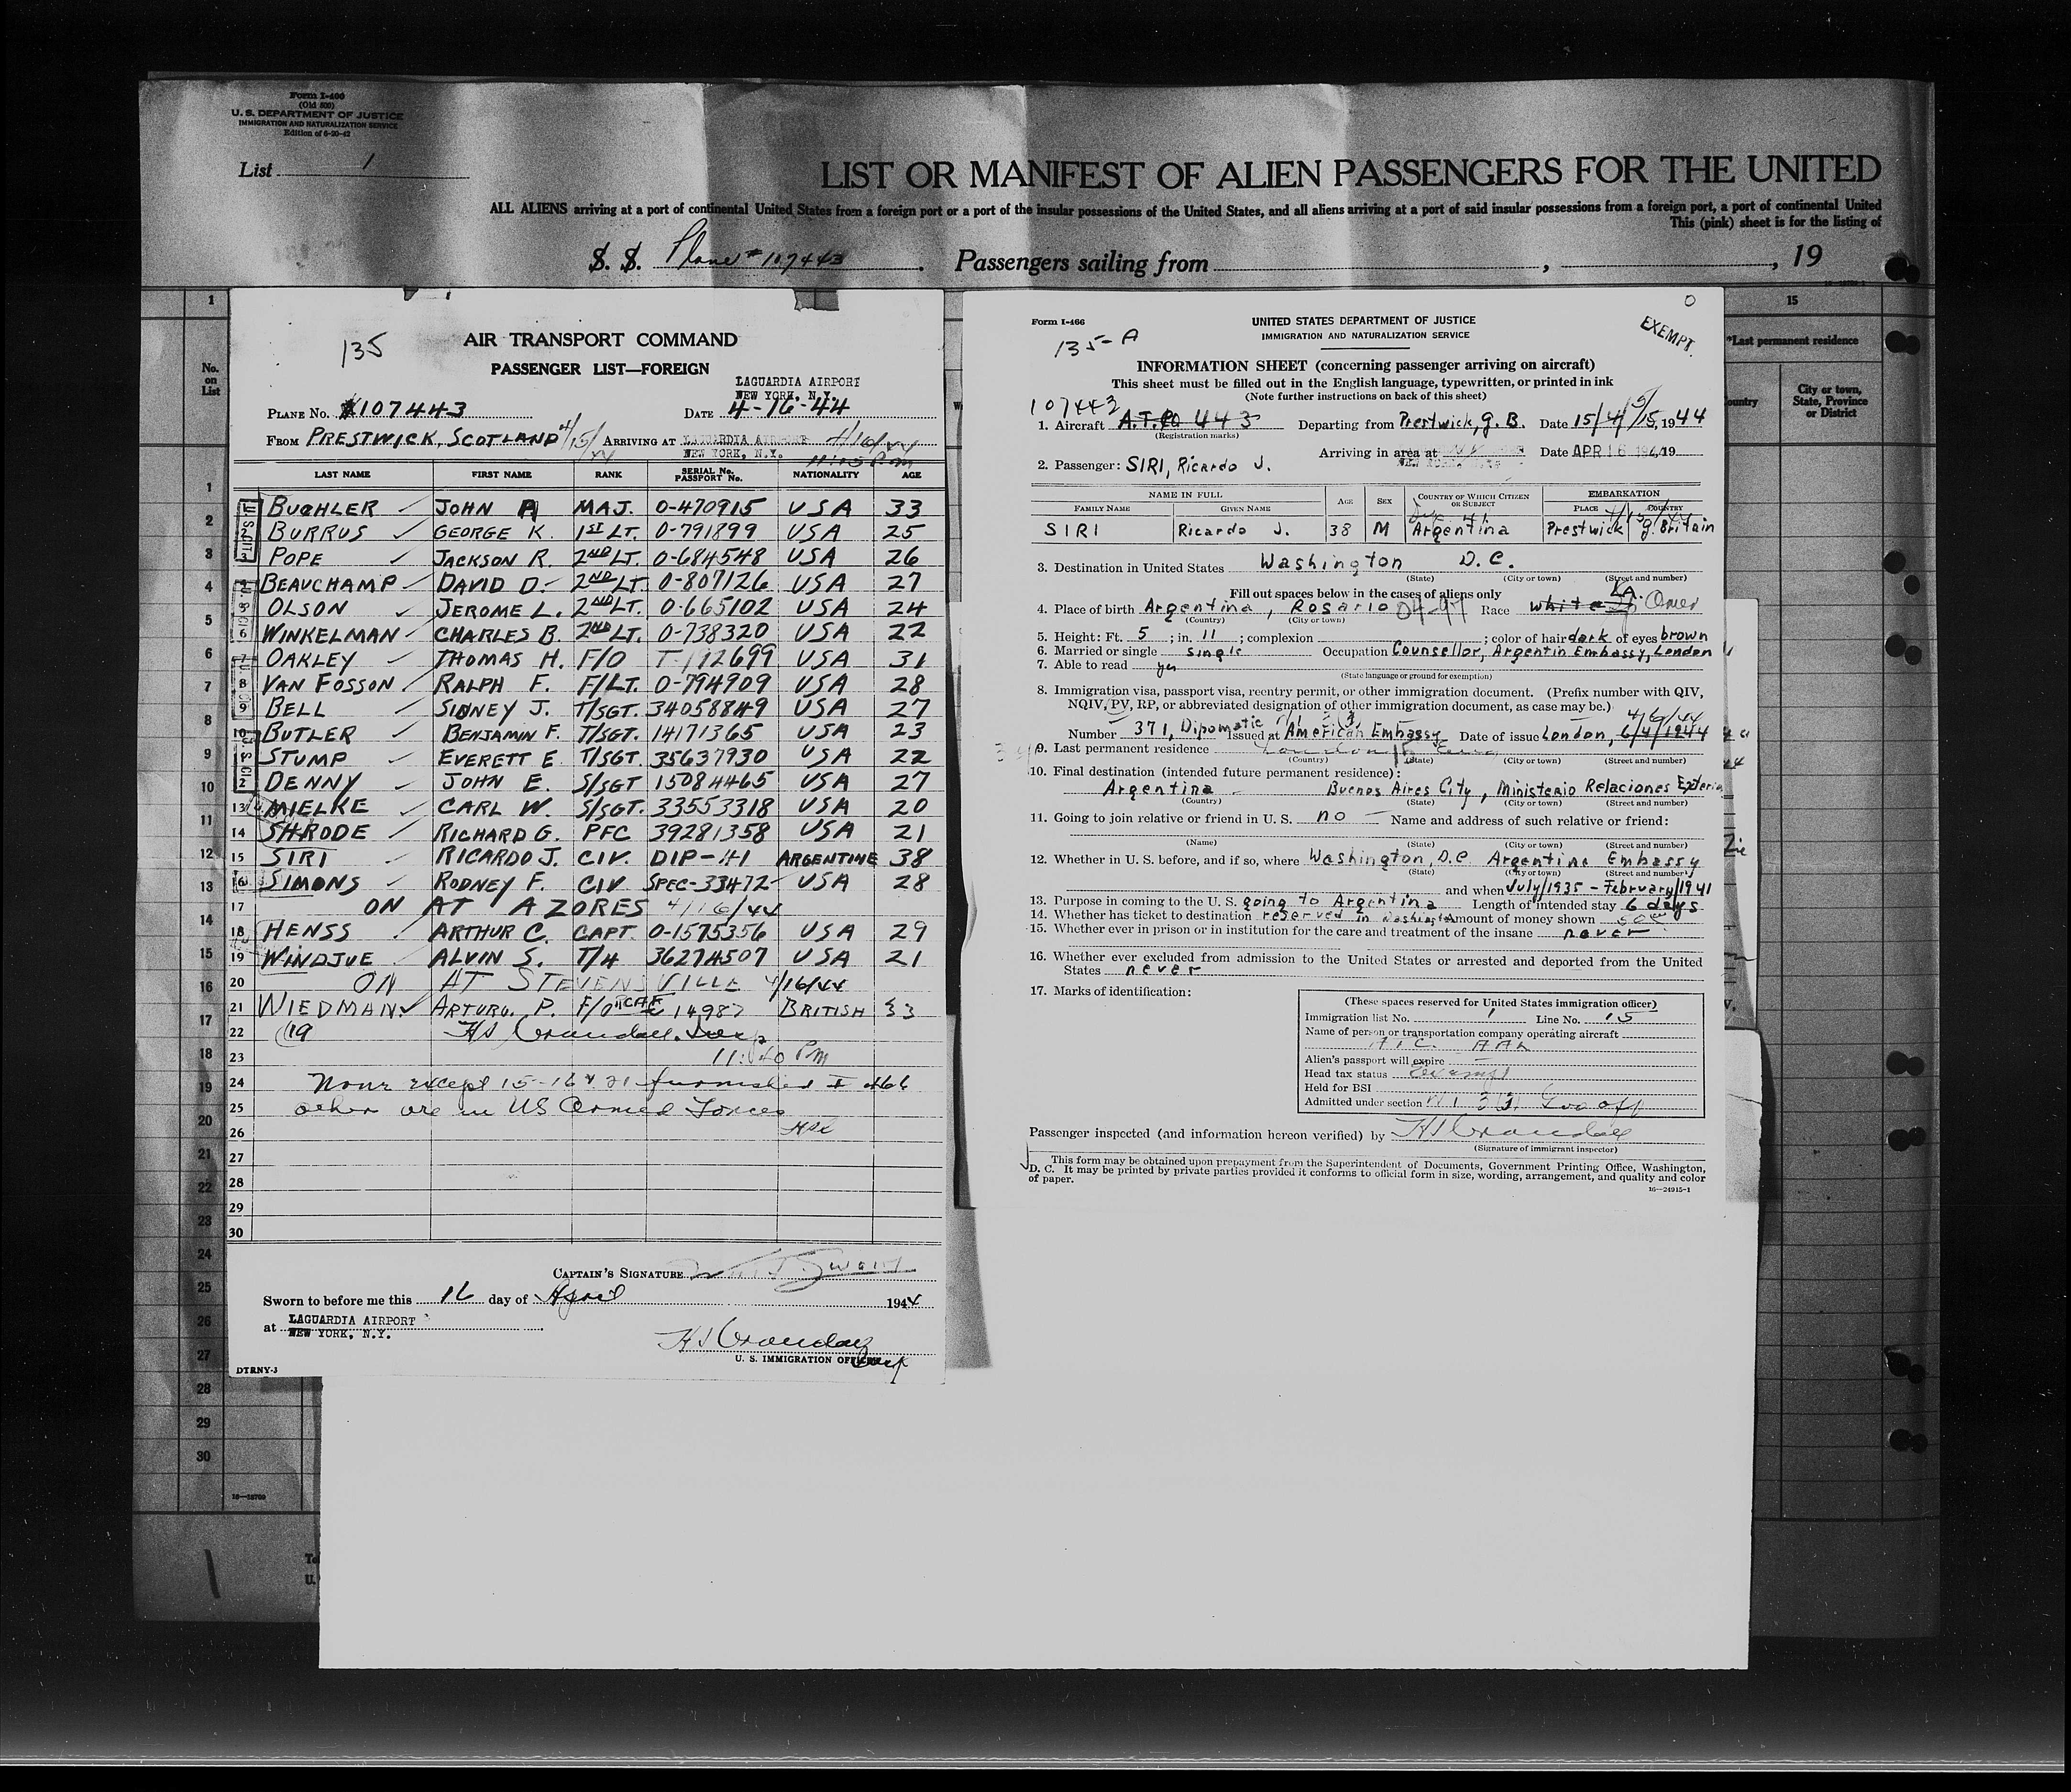 Form I-466
(Old 500)
U. S. DEPARTMENT OF JUSTICE
IMMIGRATION AND NATURALIZATION SERVICE
Edition of 6-20-42
List 1
LIST OR MANIFEST OF ALIEN PASSENGERS FOR THE UNITED
ALL ALIENS arriving at a port of continental United States from a foreign port or a port of the insular possessions of the United States, and all aliens arriving at a port of said insular possessions from a foreign port, a port of continental United
This (pink) sheet is for the listing of
S. S. Plane # 107443 Passengers sailing from , , 19
No. on List
1
2
3
4
5
6
7
8
9
10
11
12
13
14
15
16
17
18
19
20
21
22
23
24
25
26
27
28
29
30
135
AIR TRANSPORT COMMAND
PASSENGER LIST—FOREIGN
LAGUARDIA AIRPORT
NEW YORK, N.Y.
PLANE NO. 107443 DATE 4-16-44
FROM PRESTWICK, SCOTLAND 4/15/44 ARRIVING AT LAGUARDIA AIRPORT 4/16/44
NEW YORK, N.Y.
LAST NAME FIRST NAME RANK SERIAL No. PASSPORT No. NATIONALITY AGE
BUCHLER JOHN A MAJ. O-470915 USA 33
BURRUS GEORGE K. 1ST LT. O-791899 USA 25
POPE JACKSON R. 2ND LT. O-684548 USA 26
BEAUCHAMP DAVID D. 2ND LT. O-807126 USA 27
OLSON JEROME L. 2ND LT. O-665102 USA 24
6 WINKELMAN CHARLES B. 2ND LT. O-738320 USA 22
7 OAKLEY THOMAS H. F/O T-192699 USA 31
8 VAN FOSSON RALPH F. F/LT. O-794909 USA 28
9 BELL SIDNEY J. T/SGT. 34058849 USA 27
10 BUTLER BENJAMIN F. T/SGT. 14171365 USA 23
STUMP EVERETT E. T/SGT 35637930 USA 22
DENNY JOHN E. S/SGT 15084465 USA 27
13 MIELKE CARL W. S/SGT. 33553318 USA 20
14 SHRODE RICHARD G. PFC 39281358 USA 21
15 SIRI RICARDO J. CIV. DIP-41 ARGENTINE 38
16 SIMONS RODNEY F. CIV SPEC-33472 USA 28
17 ON AT AZORES 4/16/44
18 HENSS ARTHUR C. CAPT. O-1575356 USA 29
19 WINDJUE ALVIN S. T/4 36274507 USA 21
20 ON AT STEVENSVILLE 4/16/44
21 WIEDMAN ARTURO. P. F/O RCAF 14987 BRITISH 33
22 (19 HS Crandall
23 11:40 PM
24 None except 15-16 & 21 furnished I 466
25 others are in US Armed Forces
26 HSC
27
28
29
30
CAPTAIN'S SIGNATURE
Sworn to before me this 16 day of April 1944
at LAGUARDIA AIRPORT
NEW YORK, N.Y.
HS Crandall
U. S. IMMIGRATION OFFICER
DTRNY-3
16—18700
Form I-466
135-A
UNITED STATES DEPARTMENT OF JUSTICE
IMMIGRATION AND NATURALIZATION SERVICE
EXEMPT.
INFORMATION SHEET (concerning passenger arriving on aircraft)
This sheet must be filled out in the English language, typewritten, or printed in ink
(Note further instructions on back of this sheet)
107443
1. Aircraft 443 Departing from Prestwick, G. B. Date 15/4/ 1944
(Registration marks)
Arriving in area at Date APR 16 19
2. Passenger: SIRI, Ricardo J.
NAME IN FULL AGE SEX COUNTRY OF WHICH CITIZEN OR SUBJECT EMBARKATION
FAMILY NAME GIVEN NAME PLACE COUNTRY
SIRI Ricardo J. 38 M Argentina Prestwick G. Britain
3. Destination in United States Washington D. C.
(State) (City or town) (Street and number)
Fill out spaces below in the cases of aliens only
4. Place of birth Argentina, Rosario Race white
(Country) (City or town)
5. Height: Ft. 5 ; in. 11 ; complexion ; color of hair dark of eyes brown
6. Married or single single Occupation Counsellor, Argentin Embassy, London
7. Able to read yes
(State language or ground for exemption)
8. Immigration visa, passport visa, reentry permit, or other immigration document. (Prefix number with QIV,
NQIV, PV, RP, or abbreviated designation of other immigration document, as case may be.)
Number 371, Dipomatic Issued at American Embassy Date of issue London, 6/4/1944
9. Last permanent residence London
(Country) (State) (City or town) (Street and number)
10. Final destination (intended future permanent residence):
Argentina Buenos Aires City, Ministerio Relaciones Exterio
(Country) (State) (City or town) (Street and number)
11. Going to join relative or friend in U. S. no Name and address of such relative or friend:
(Name) (State) (City or town) (Street and number)
12. Whether in U. S. before, and if so, where Washington, D.C. Argentine Embassy
(State) (City or town) (Street and number)
and when July/1935 - February/1941
13. Purpose in coming to the U. S. going to Argentina Length of intended stay 6 days
14. Whether has ticket to destination reserved in Washington Amount of money shown
15. Whether ever in prison or in institution for the care and treatment of the insane never
16. Whether ever excluded from admission to the United States or arrested and deported from the United
States never
17. Marks of identification:
(These spaces reserved for United States immigration officer)
Immigration list No. 1 Line No. 15
Name of person or transportation company operating aircraft
ATC.
Alien's passport will expire
Head tax status exempt
Held for BSI
Admitted under section 3(1) Gov off
Passenger inspected (and information hereon verified) by HS Crandall
(Signature of immigrant inspector)
This form may be obtained upon prepayment from the Superintendent of Documents, Government Printing Office, Washington,
D. C. It may be printed by private parties provided it conforms to official form in size, wording, arrangement, and quality and color
of paper.
16—24915-1
15
*Last permanent residence
Country
City or town, State, Province or District